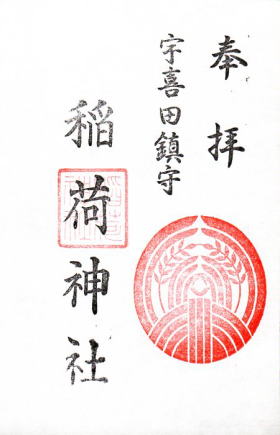 奉拝
宇喜田鎮守
稲荷神社